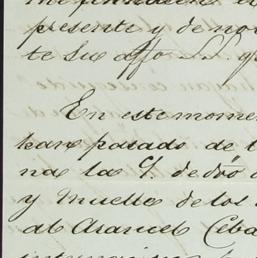 presente y de no
te Su affo S.S. q
En este mome
han pasado de l
na la C. de dro
y Muelle de los
al Arancel Ceba